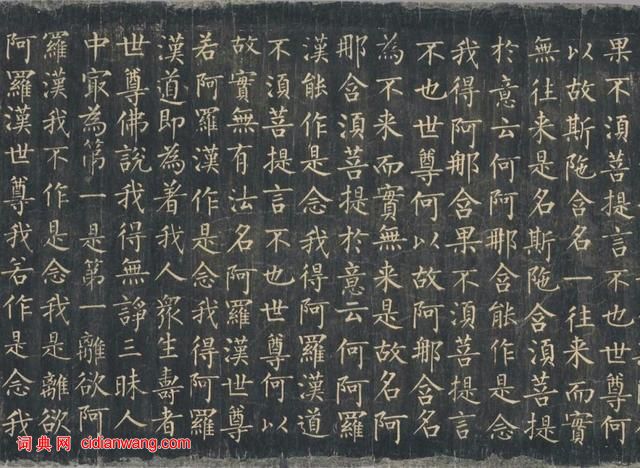 果不須菩提言不也世尊何
以故斯陁含名一往来而實
無往来是名斯陁含須菩提
於意云何阿那含能作是念
我得阿那含果不須菩提言
不也世尊何以故阿那含名
為不来而實無来是故名阿
那含須菩提於意云何阿羅
漢能作是念我得阿羅漢道
不須菩提言不也世尊何以
故實無有法名阿羅漢世尊
若阿羅漢作是念我得阿羅
漢道即為著我人衆生壽者
世尊佛說我得無諍三昧人
中冣為第一是第一離欲阿
羅漢我不作是念我是離欲
阿羅漢世尊我若作是念我
词典网 cidianwang.com